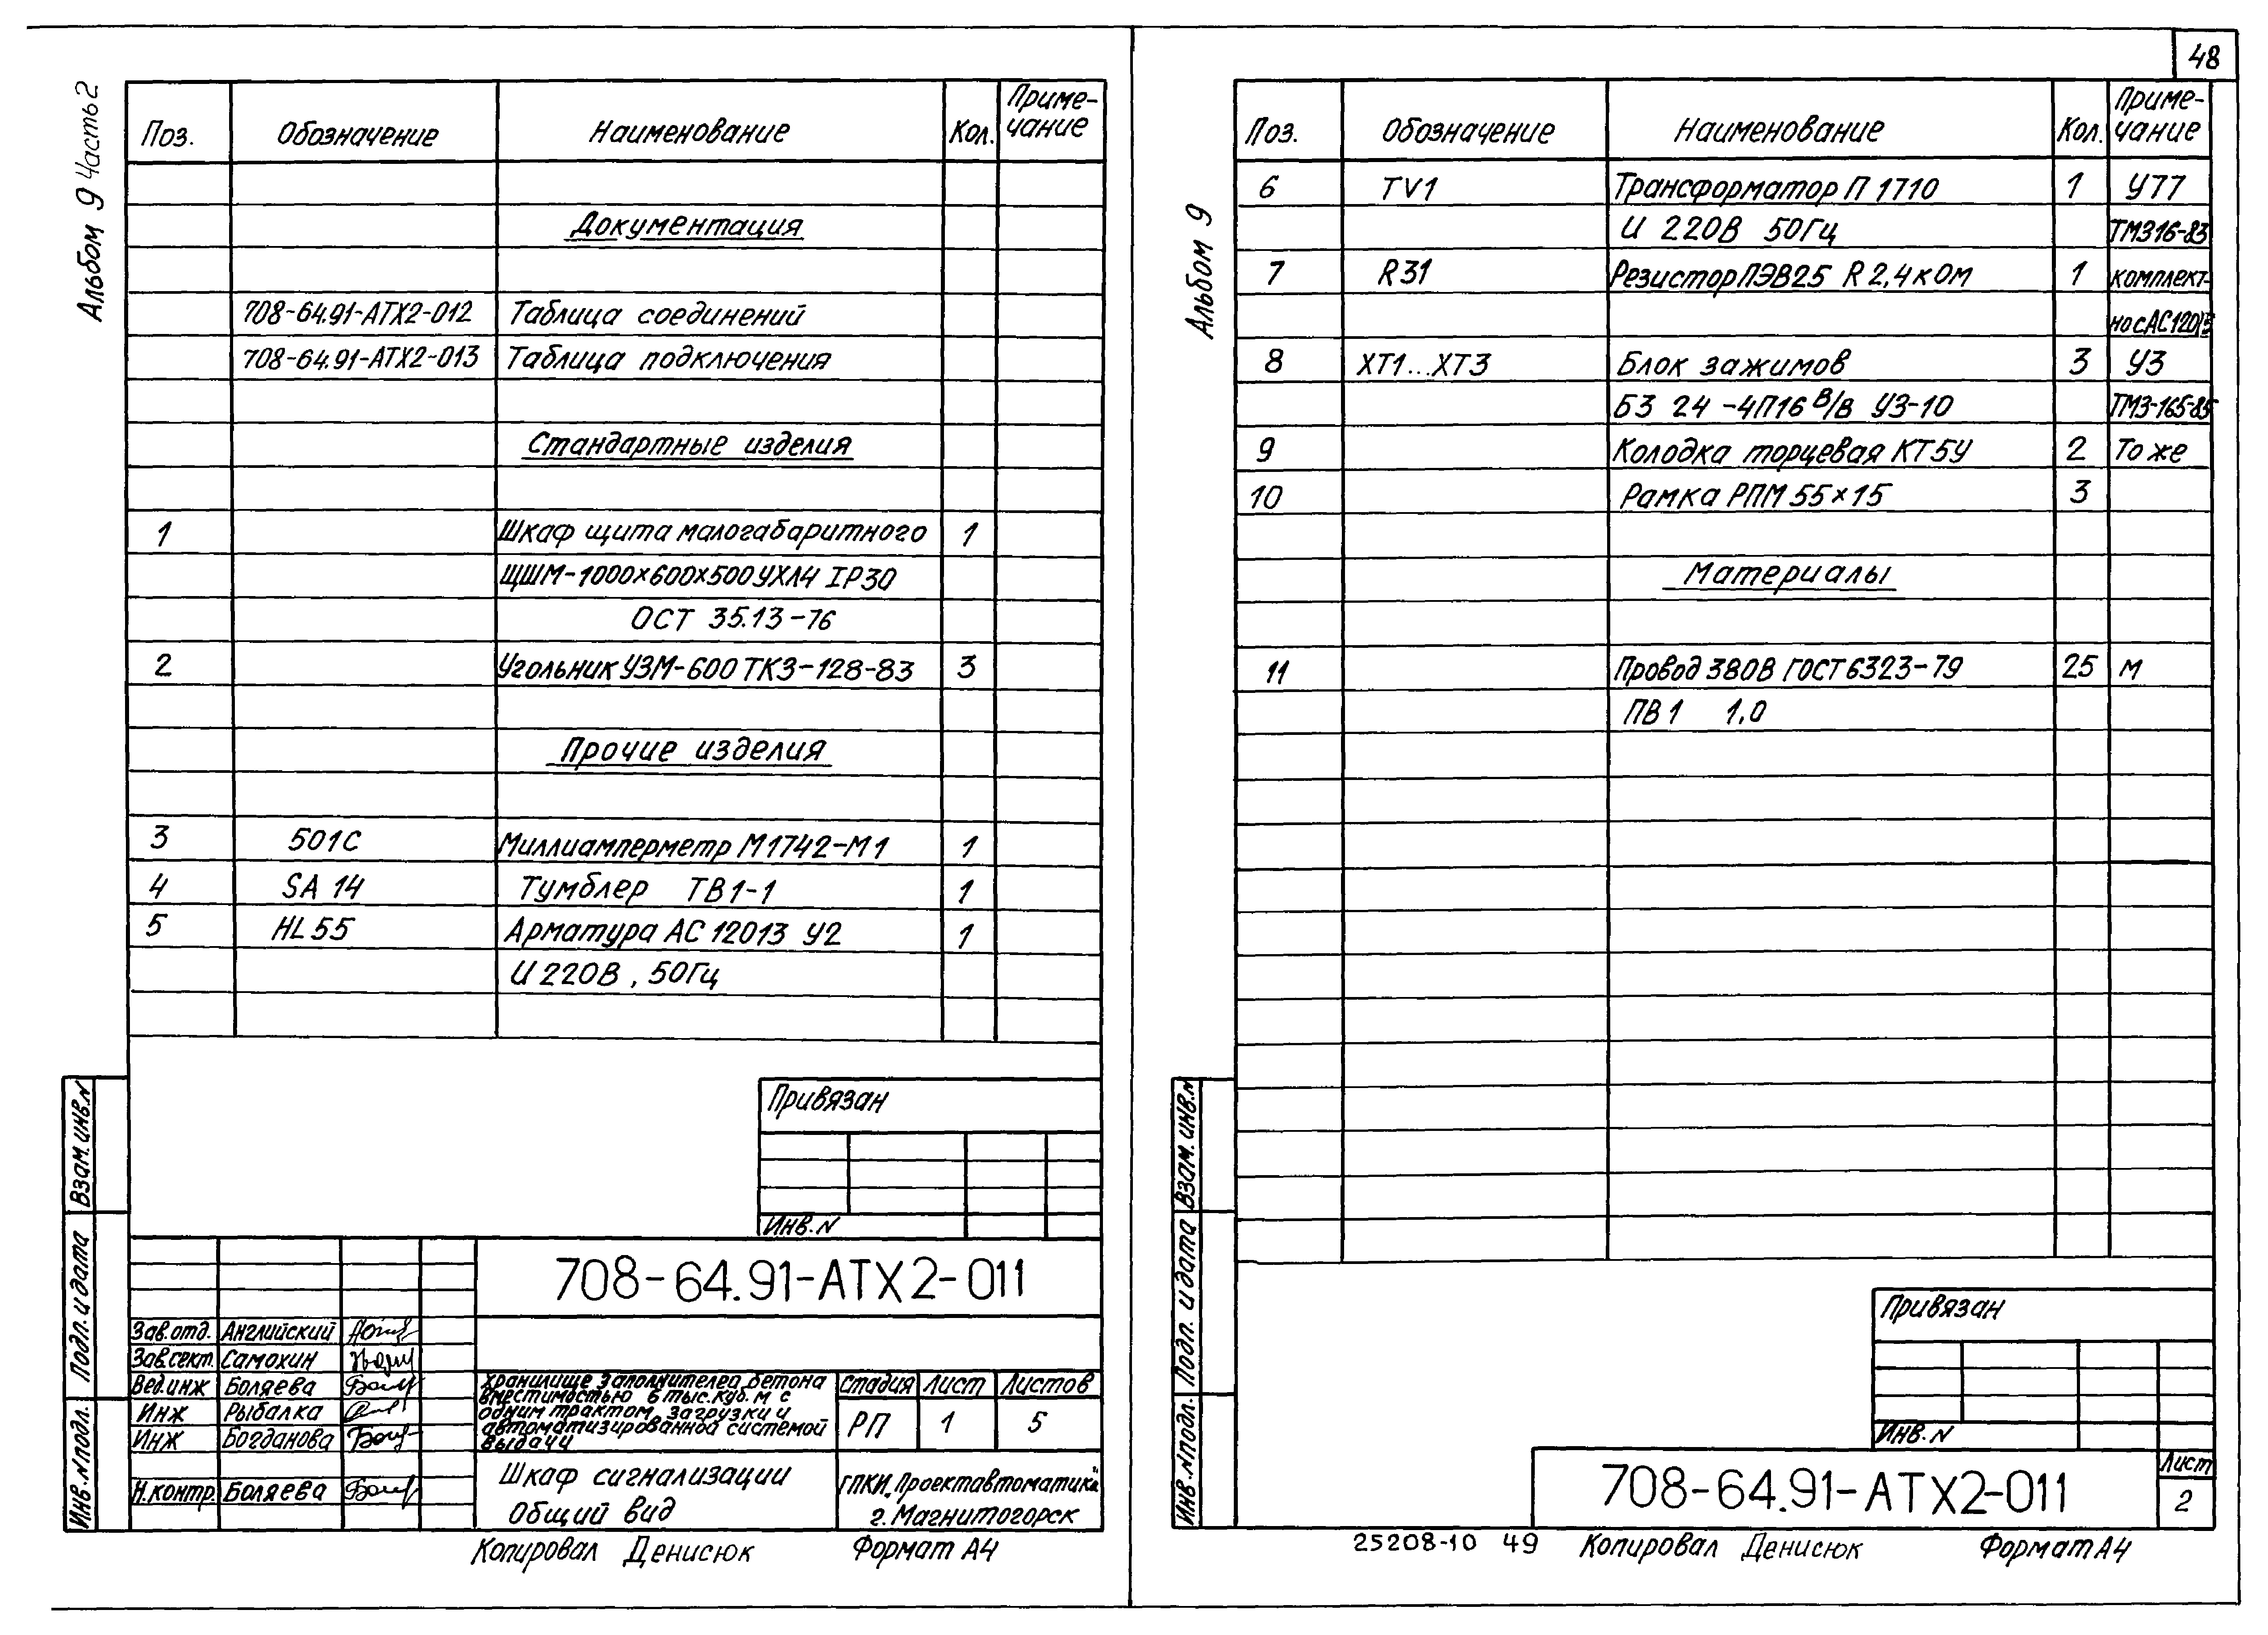 48
Альбом 9 Часть 2
Поз. Обозначение Наименование Кол. Приме-
чание
Документация
708-64.91-АТХ2-012 Таблица соединений
708-64.91-АТХ2-013 Таблица подключения
Стандартные изделия
1 Шкаф щита малогабаритного 1
ЩШМ-1000х600х500УХЛ4 IP30
ОСТ 35.13-76
2 Угольник УЗМ-600 ТК3-128-83 3
Прочие изделия
3 501С Миллиамперметр М1742-М1 1
4 SA 14 Тумблер ТВ1-1 1
5 HL55 Арматура АС 12013 У2 1
U 220В, 50Гц
Привязан
Инв. N
708-64.91-АТХ2-011
Зав.отд. Английский
Зав.сект. Самохин
Вед.инж Боляева
Инж Рыбалка
Инж Богданова
Н.контр. Боляева
Хранилище заполнителей бетона
вместимостью 6 тыс.куб.м с
одним трактом загрузки и
автоматизированной системой
выдачи
Стадия Лист Листов
РП 1 5
Шкаф сигнализации
Общий вид
ГПКИ „Проектавтоматика"
г. Магнитогорск
Взам. инв. N
Подп. и дата
Инв. N подл.
Копировал Денисюк Формат А4
Альбом 9
Поз. Обозначение Наименование Кол. Приме-
чание
6 TV1 Трансформатор П 1710 1 У77
U 220В 50Гц ТМ316-83
7 R31 Резистор ПЭВ25 R 2,4 кОм 1 комплект-
но с АС12013
8 ХТ1...ХТ3 Блок зажимов 3 У3
БЗ 24 -4П16 В/В У3-10 ТМ3-165-85
9 Колодка торцевая КТ5У 2 То же
10 Рамка РПМ 55×15 3
Материалы
11 Провод 380В ГОСТ 6323-79 25 м
ПВ1 1,0
Привязан
Инв. N
708-64.91-АТХ2-011
Лист
2
Взам. инв. N
Подп. и дата
Инв. N подл.
25208-10 49 Копировал Денисюк Формат А4